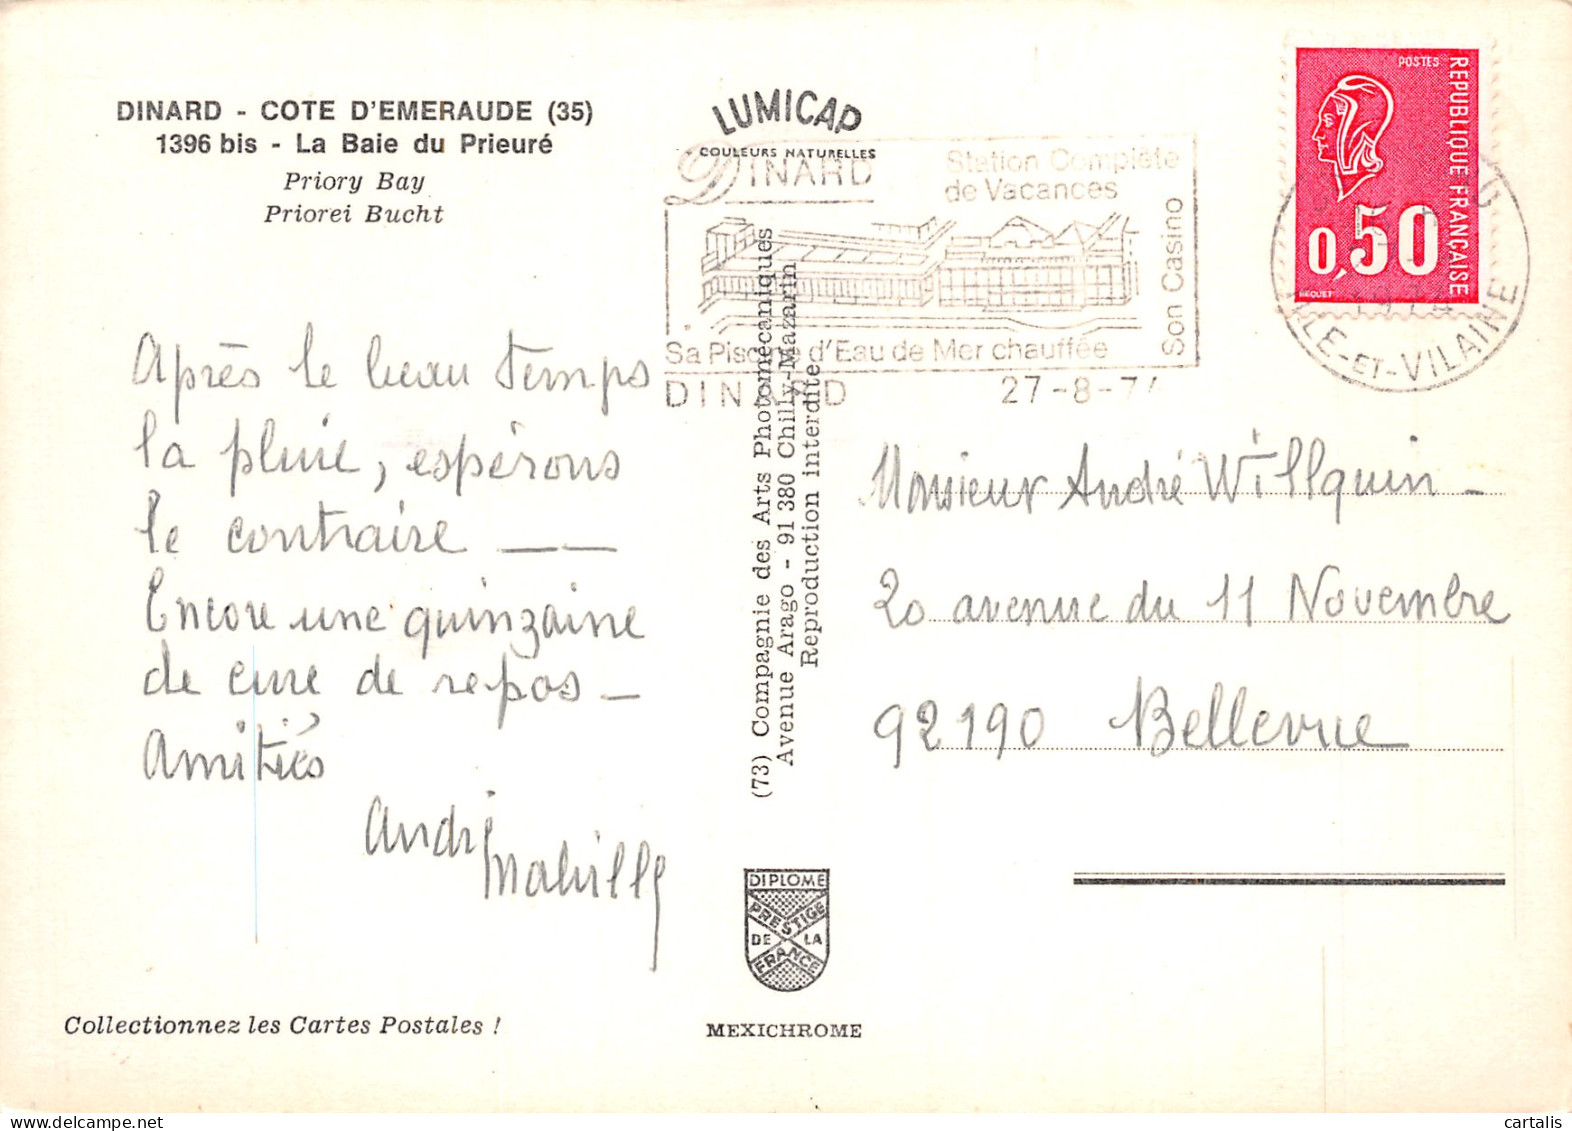 DINARD - COTE D'EMERAUDE (35)
1396 bis - La Baie du Prieuré
Priory Bay
Priorei Bucht
Après le beau temps
la pluie, espérons
le contraire — —
Encore une quinzaine
de cure de repos —
Amitiés
André
Collectionnez les Cartes Postales !
LUMICAP
COULEURS NATURELLES
DINARD
Station Complète
de Vacances
Son Casino
Sa Piscine d'Eau de Mer chauffée
DINARD 27-8-74
(73) Compagnie des Arts Photomécaniques
Avenue Arago - 91 380 Chilly-Mazarin
Reproduction interdite
DIPLOME
PRESTIGE
DE LA
FRANCE
MEXICHROME
POSTES
REPUBLIQUE FRANÇAISE
0,50
BEQUET
ILLE-ET-VILAINE
Monsieur André Willquin -
20 avenue du 11 Novembre
92190 Bellevue
cartalis